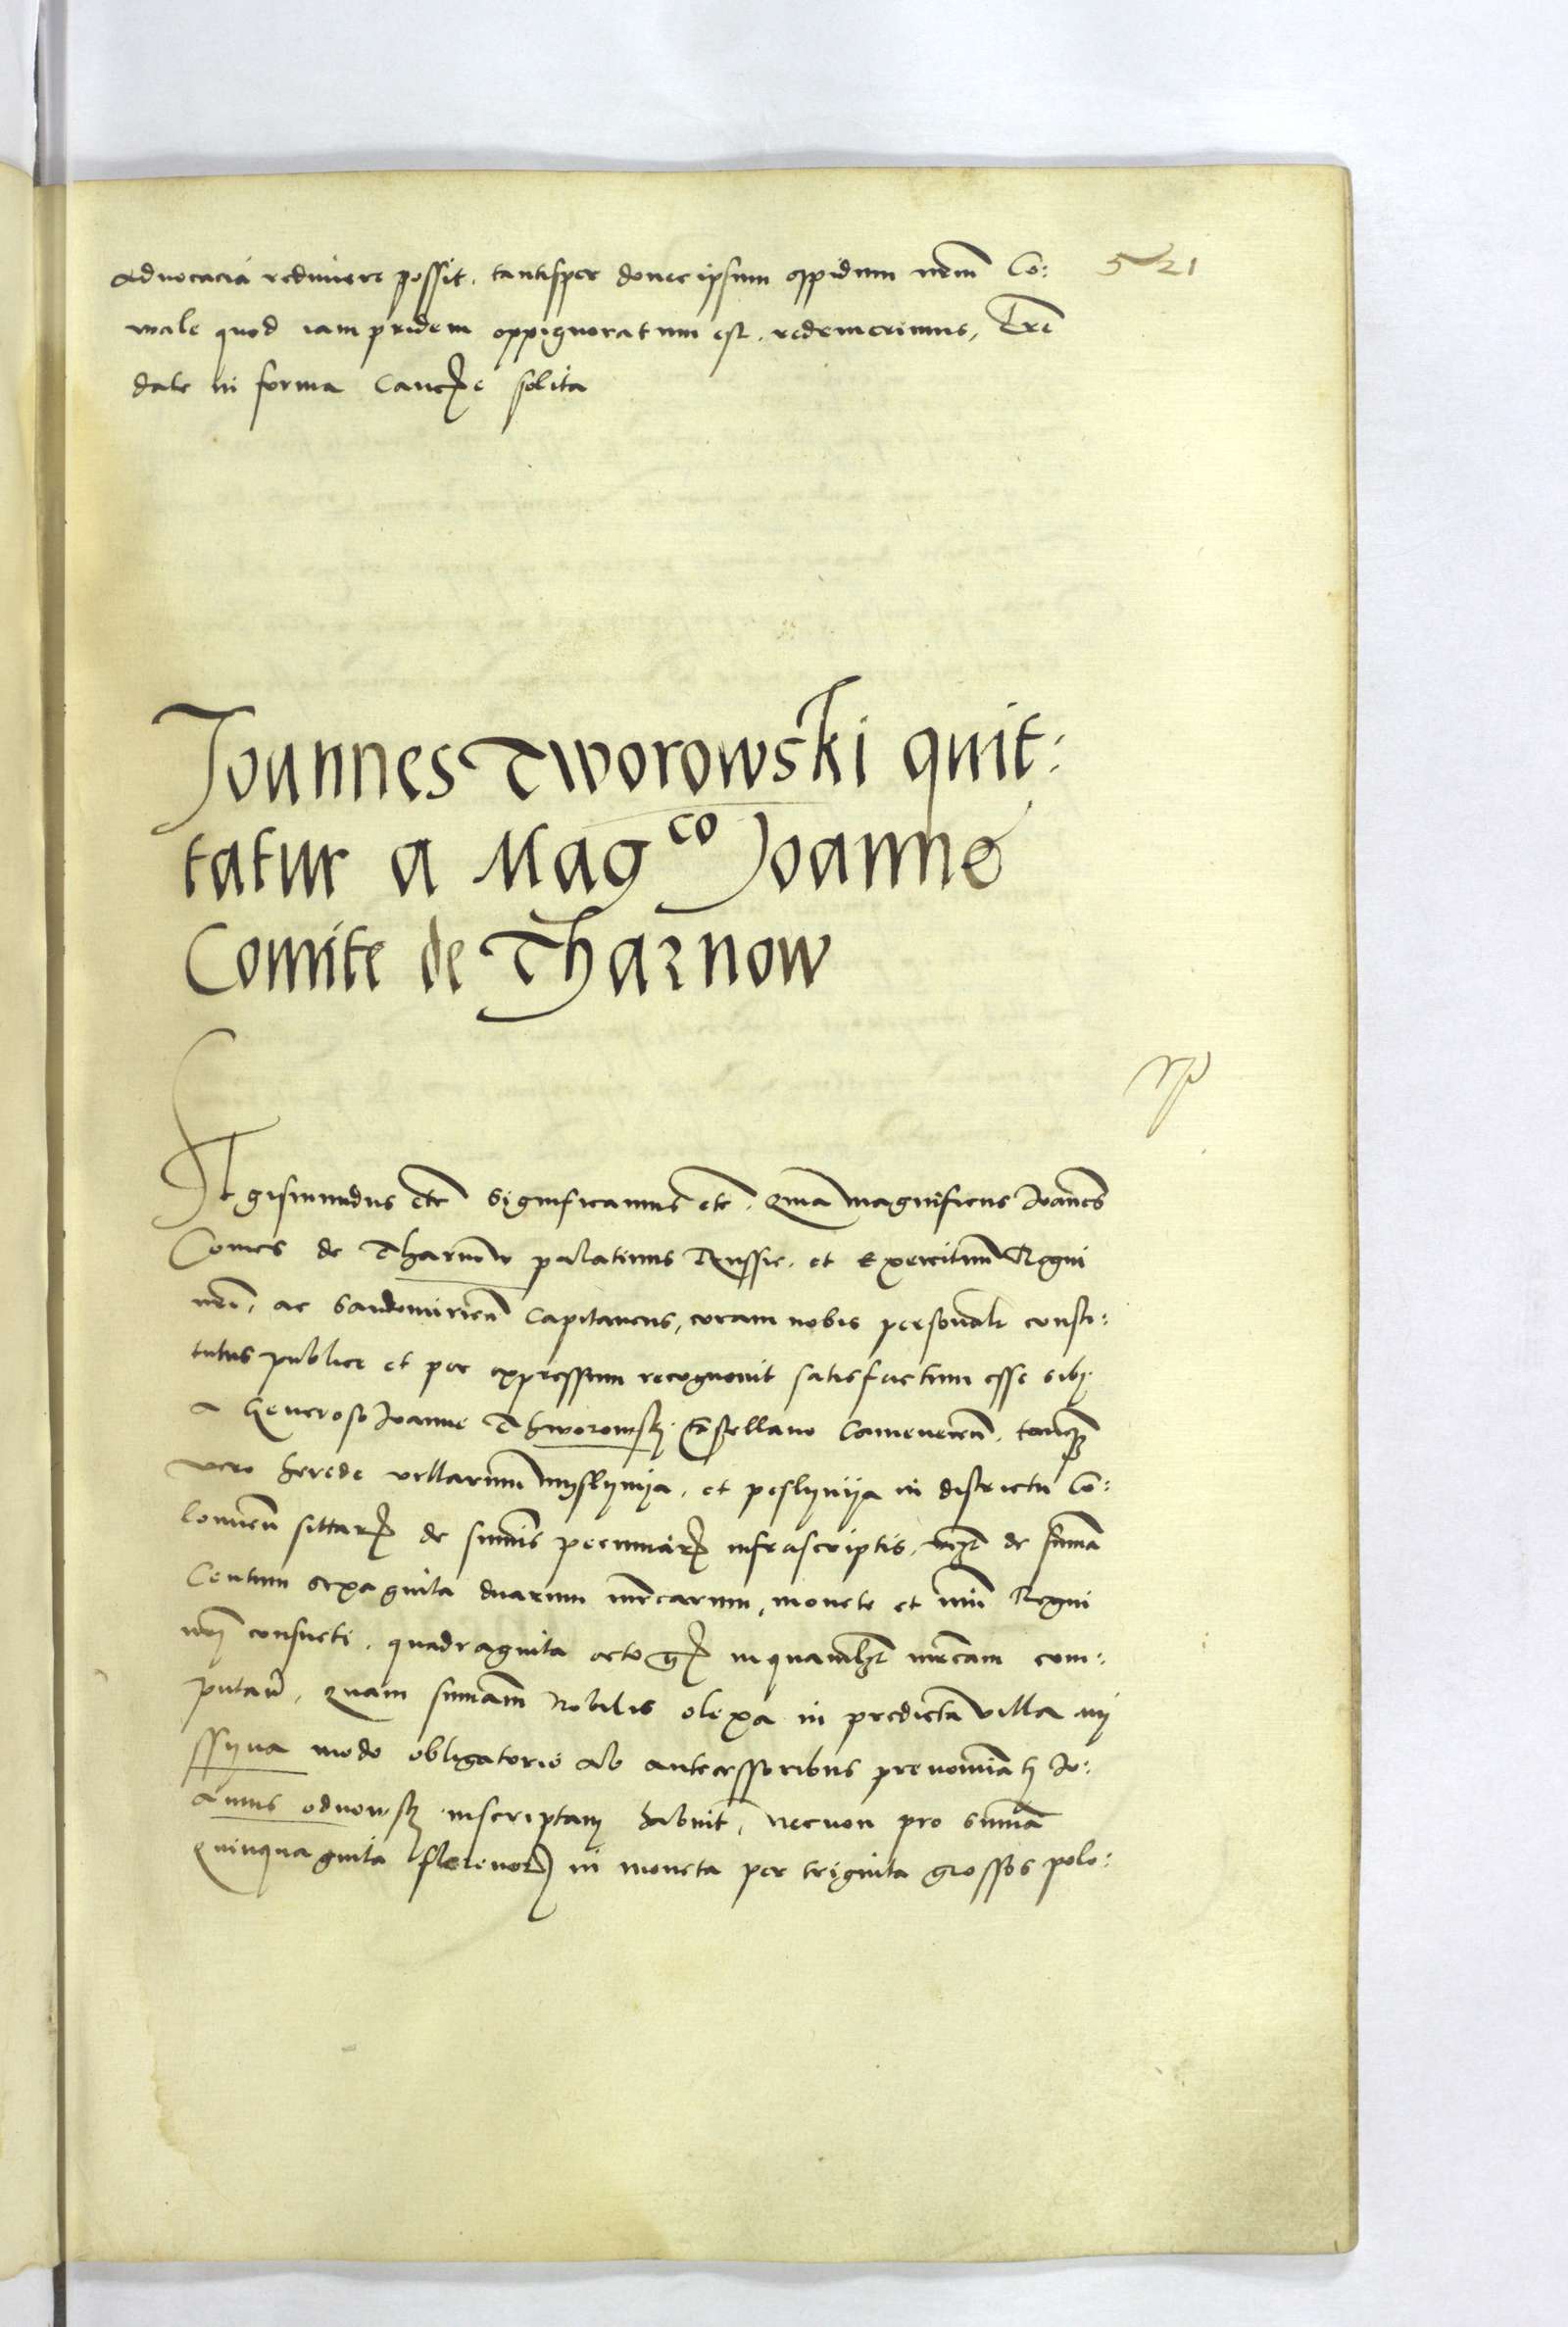 advocacia redimere possit, tantisper donec ipsum oppidum nrm̄ Co:
wale quod iam pridem oppignoratum est, redemerimus, Lrē
date in forma Cancꝝe solita
521
Joannes Tworowski quit:
tatur a Magco Joanne
Comite de Tharnow
Sigismundus etc̄ significamus etc̄. Quia magnificus Joannes
Comes de Tharnow palatinus Russie, et Exercituum Regni
nrī, ac Sandomirien̄ Capitaneus, coram nobis personalr̄ consti:
tutus publice et per expressum recognovit satisfactum esse sibi
a Generoso Joanne Thworowsky Castellano Camenecen̄, tanqꝫ
vero herede villarum myslynya, et peslynya in districtu Co:
lomien̄ sittarꝝ de summis pecuniarꝝ infrascriptis, vidzt̄ de summa
Centum sexaginta duarum mrcarum, monete et nūi Regni
nrī consueti, quadraginta octo grꝝ in quamlibet mrcam com:
putan̄, quam summam Nobilis olexa in predicta villa mi
ssyna modo obligatorio ab antecessoribus prenominati Jo:
annis odnowsky inscriptam habuit, Necnon pro summa
Quinquaginta florenoꝝ in moneta per triginta grossos polo: